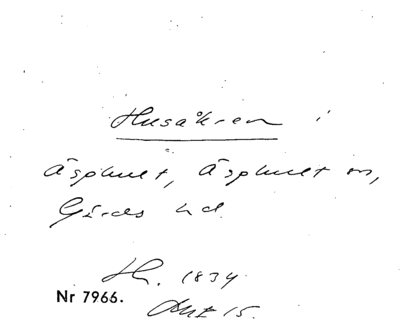 Husåkren i
Äsphult, Äsphult sn,
Gärds hd
H. 1834
Nr 7966.
Akt 15.